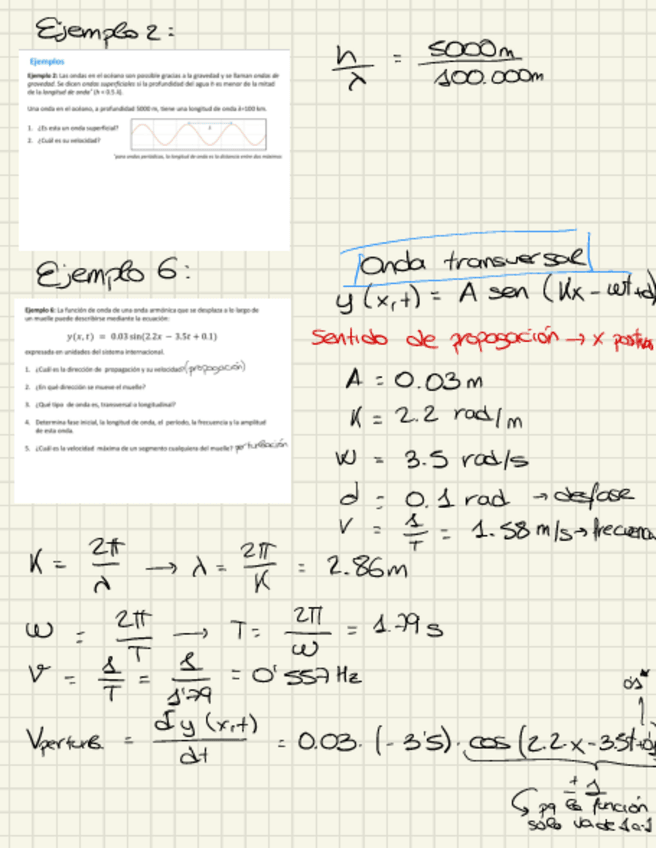 Ejemplo 2:
Ejemplos
Ejemplo 2: Las ondas en el océano son possible gracias a la gravedad y se llaman ondas de
gravedad. Se dicen ondas superficiales si la profundidad del agua h es menor de la mitad
de la longitud de onda* (h < 0.5 λ).
Una onda en el océano, a profundidad 5000 m, tiene una longitud de onda λ=100 km.
1. ¿Es esta un onda superficial?
2. ¿Cuál es su velocidad?
*para ondas periódicas, la longitud de onda es la distancia entre dos máximos
h/λ = 5000m/100.000m
Ejemplo 6:
Ejemplo 6: La función de onda de una onda armónica que se desplaza a lo largo de
un muelle puede describirse mediante la ecuación:
y(x,t) = 0.03 sin(2.2x − 3.5t + 0.1)
expresada en unidades del sistema internacional.
1. ¿Cuál es la dirección de propagación y su velocidad? (propagación)
2. ¿En qué dirección se mueve el muelle?
3. ¿Qué tipo de onda es, transversal o longitudinal?
4. Determina fase inicial, la longitud de onda, el período, la frecuencia y la amplitud
de esta onda.
5. ¿Cuál es la velocidad máxima de un segmento cualquiera del muelle? perturbación
Onda transversal
y (x,t) = A sen (Kx - wt + d)
Sentido de propagación → x
A = 0.03 m
K = 2.2 rad/m
w = 3.5 rad/s
d = 0.1 rad → desfase
V = 1/T = 1.58 m/s →
K = 2π/λ → λ = 2π/K = 2.86m
ω = 2π/T → T = 2π/ω = 1.79 s
V = 1/T = 1/1'79 = 0'557 Hz
Vperturb. = dy (x,t)/dt = 0.03 · (-3'5) · cos (2.2·x - 3.5t +
± 1
↳ pq la función
solo va de 1 a -1